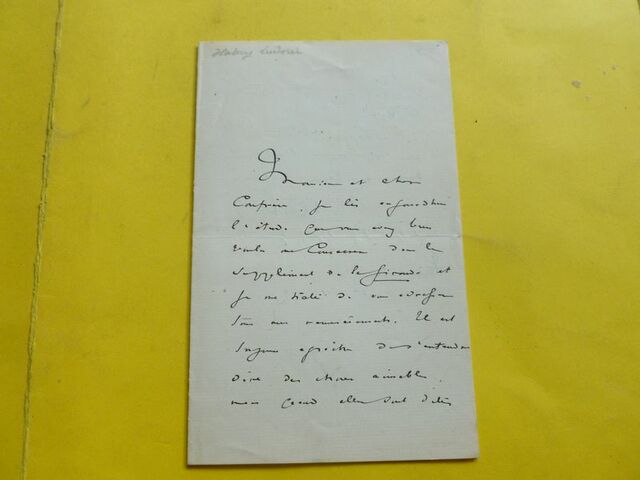 Monsieur et cher
Confrère, Je lis aujourd'hui
l'étude que vous avez bien
voulu me consacrer dans le
supplément de la Gironde et
je me hâte de vous adresser
tous mes remerciements. Il est
toujours agréable de s'entendre
dire des choses aimables,
mais quand elles sont dites